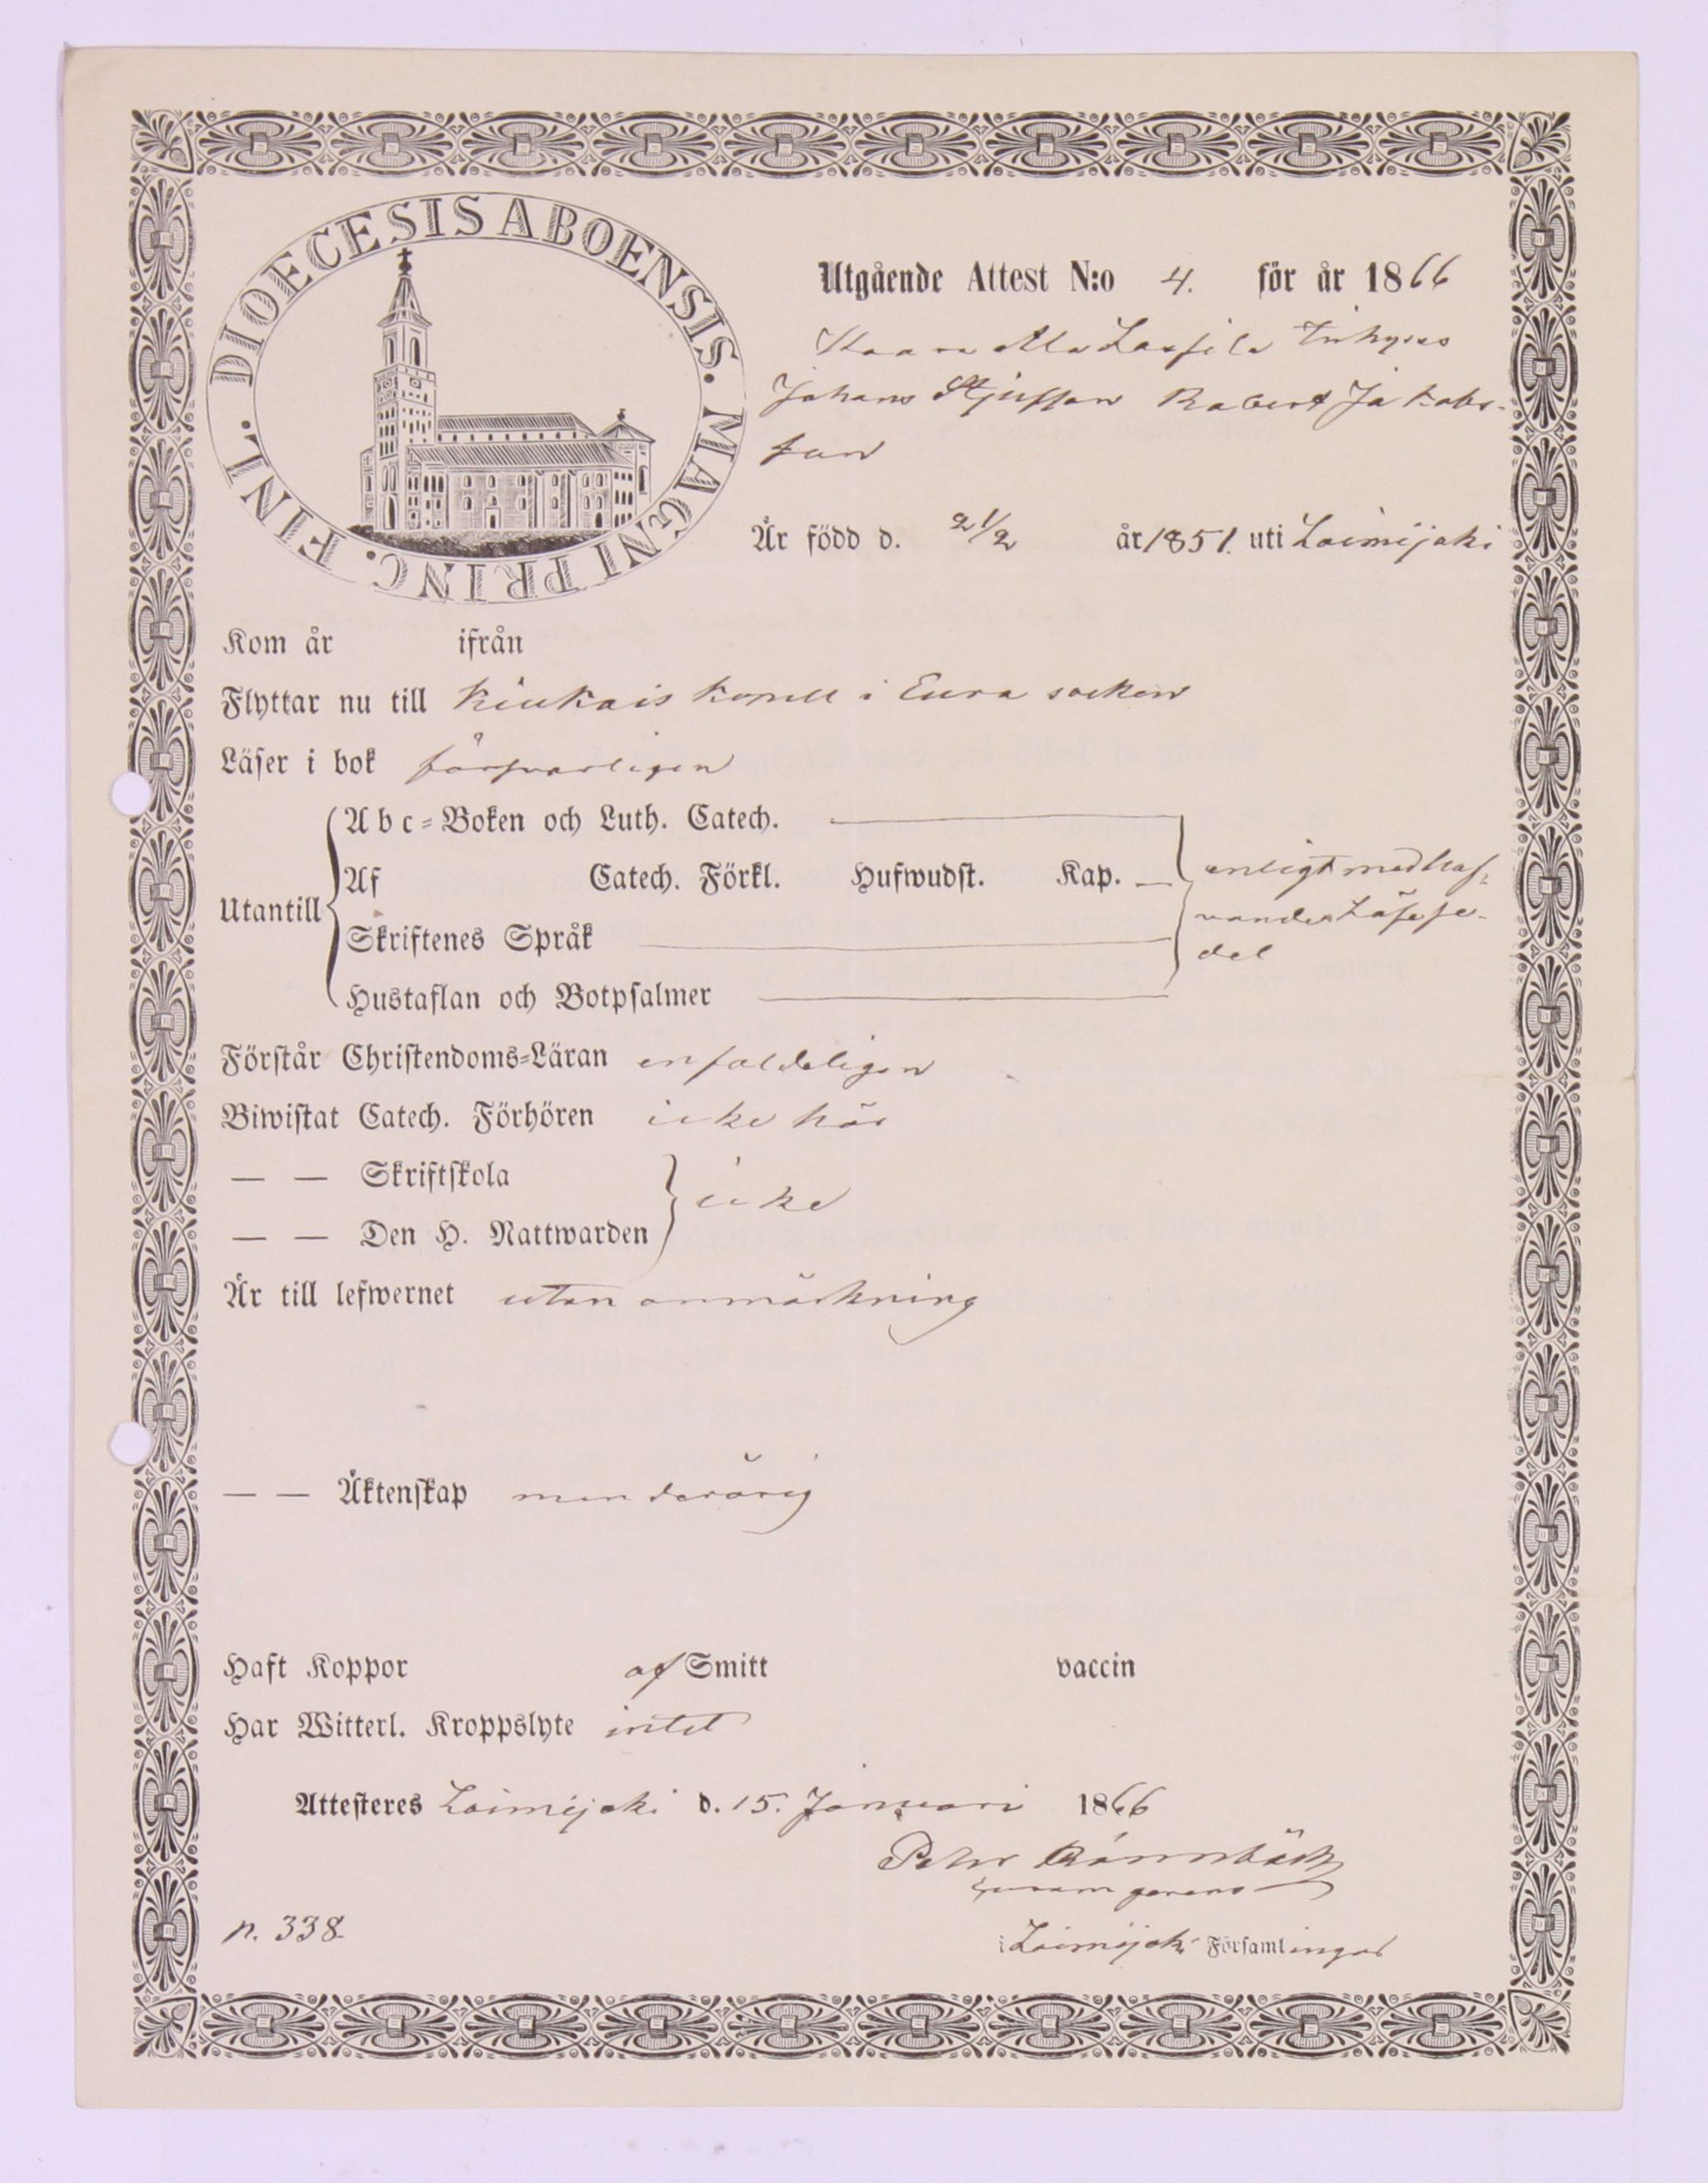 DIOECESIS ABOENSIS. MAGNI PRINC. FINL.
Utgående Attest N:o 4. för år 1866
Johans Robert Jakobs-
son
Är född d. 21/2 år 1851. uti Loimijoki
Kom år ifrån
Flyttar nu till Kiukais kapell i Eura socken
Läser i bok försvarligen
Utantill
Abc-Boken och Luth. Catech.
Af Catech. Förkl. Hufwudst. Kap.
Skriftenes Språk
Hustaflan och Botpsalmer
enligt medhaf-
vande Läsese-
del
Förstår Christendoms-Läran enfaldeligen
Biwistat Catech. Förhören icke här
— — Skriftskola
— — Den H. Nattwarden
icke
Är till lefwernet utan anmärkning
— — Äktenskap minderårig
Haft Koppor af Smitt vaccin
Har Witterl. Kroppslyte intet
Attesteres Loimijoki d. 15. Januari 1866
Petter Rönnbäck
curam gerens
p. 338.
i Loimijoki Församlingar